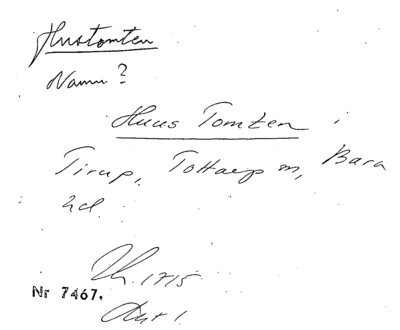 Hustomten
Namn?
Huus Tomten i
Tirup, Tottarp sn, Bara
hd.
1715
Nr 7467.
Akt 1.